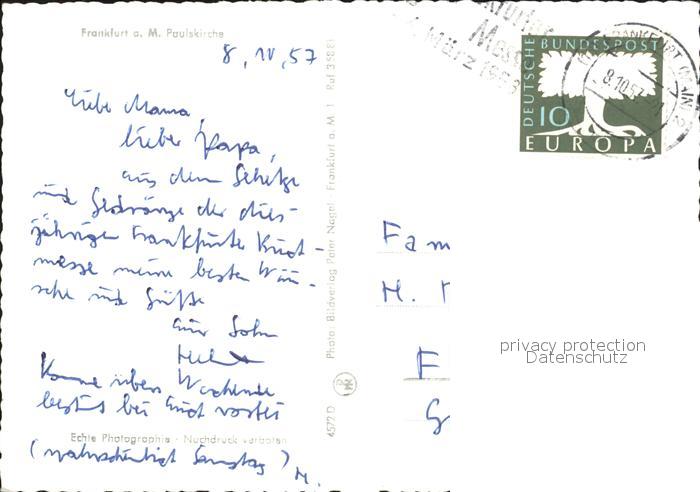 Frankfurt a. M. Paulskirche
8. IV. 57
Liebe Mama,
lieber Papa,
aus dem Gehetze
und Gedränge der dies-
jährigen Frankfurter
messe meine besten Wün-
sche und Grüße
Euer Sohn
Komme übers Wochende
bei Euch vorbei
(wahrscheinlich Samstag) H.
Echte Photographie · Nachdruck verboten
4572 D
Photo: Bildverlag Peter Nagel · Frankfurt a. M. 1 · Ruf
März 1958
FRANKFURT (MAIN) 2
8.10.57
DEUTSCHE BUNDESPOST
10
EUROPA
Fam
H.
F
G
privacy protection
Datenschutz